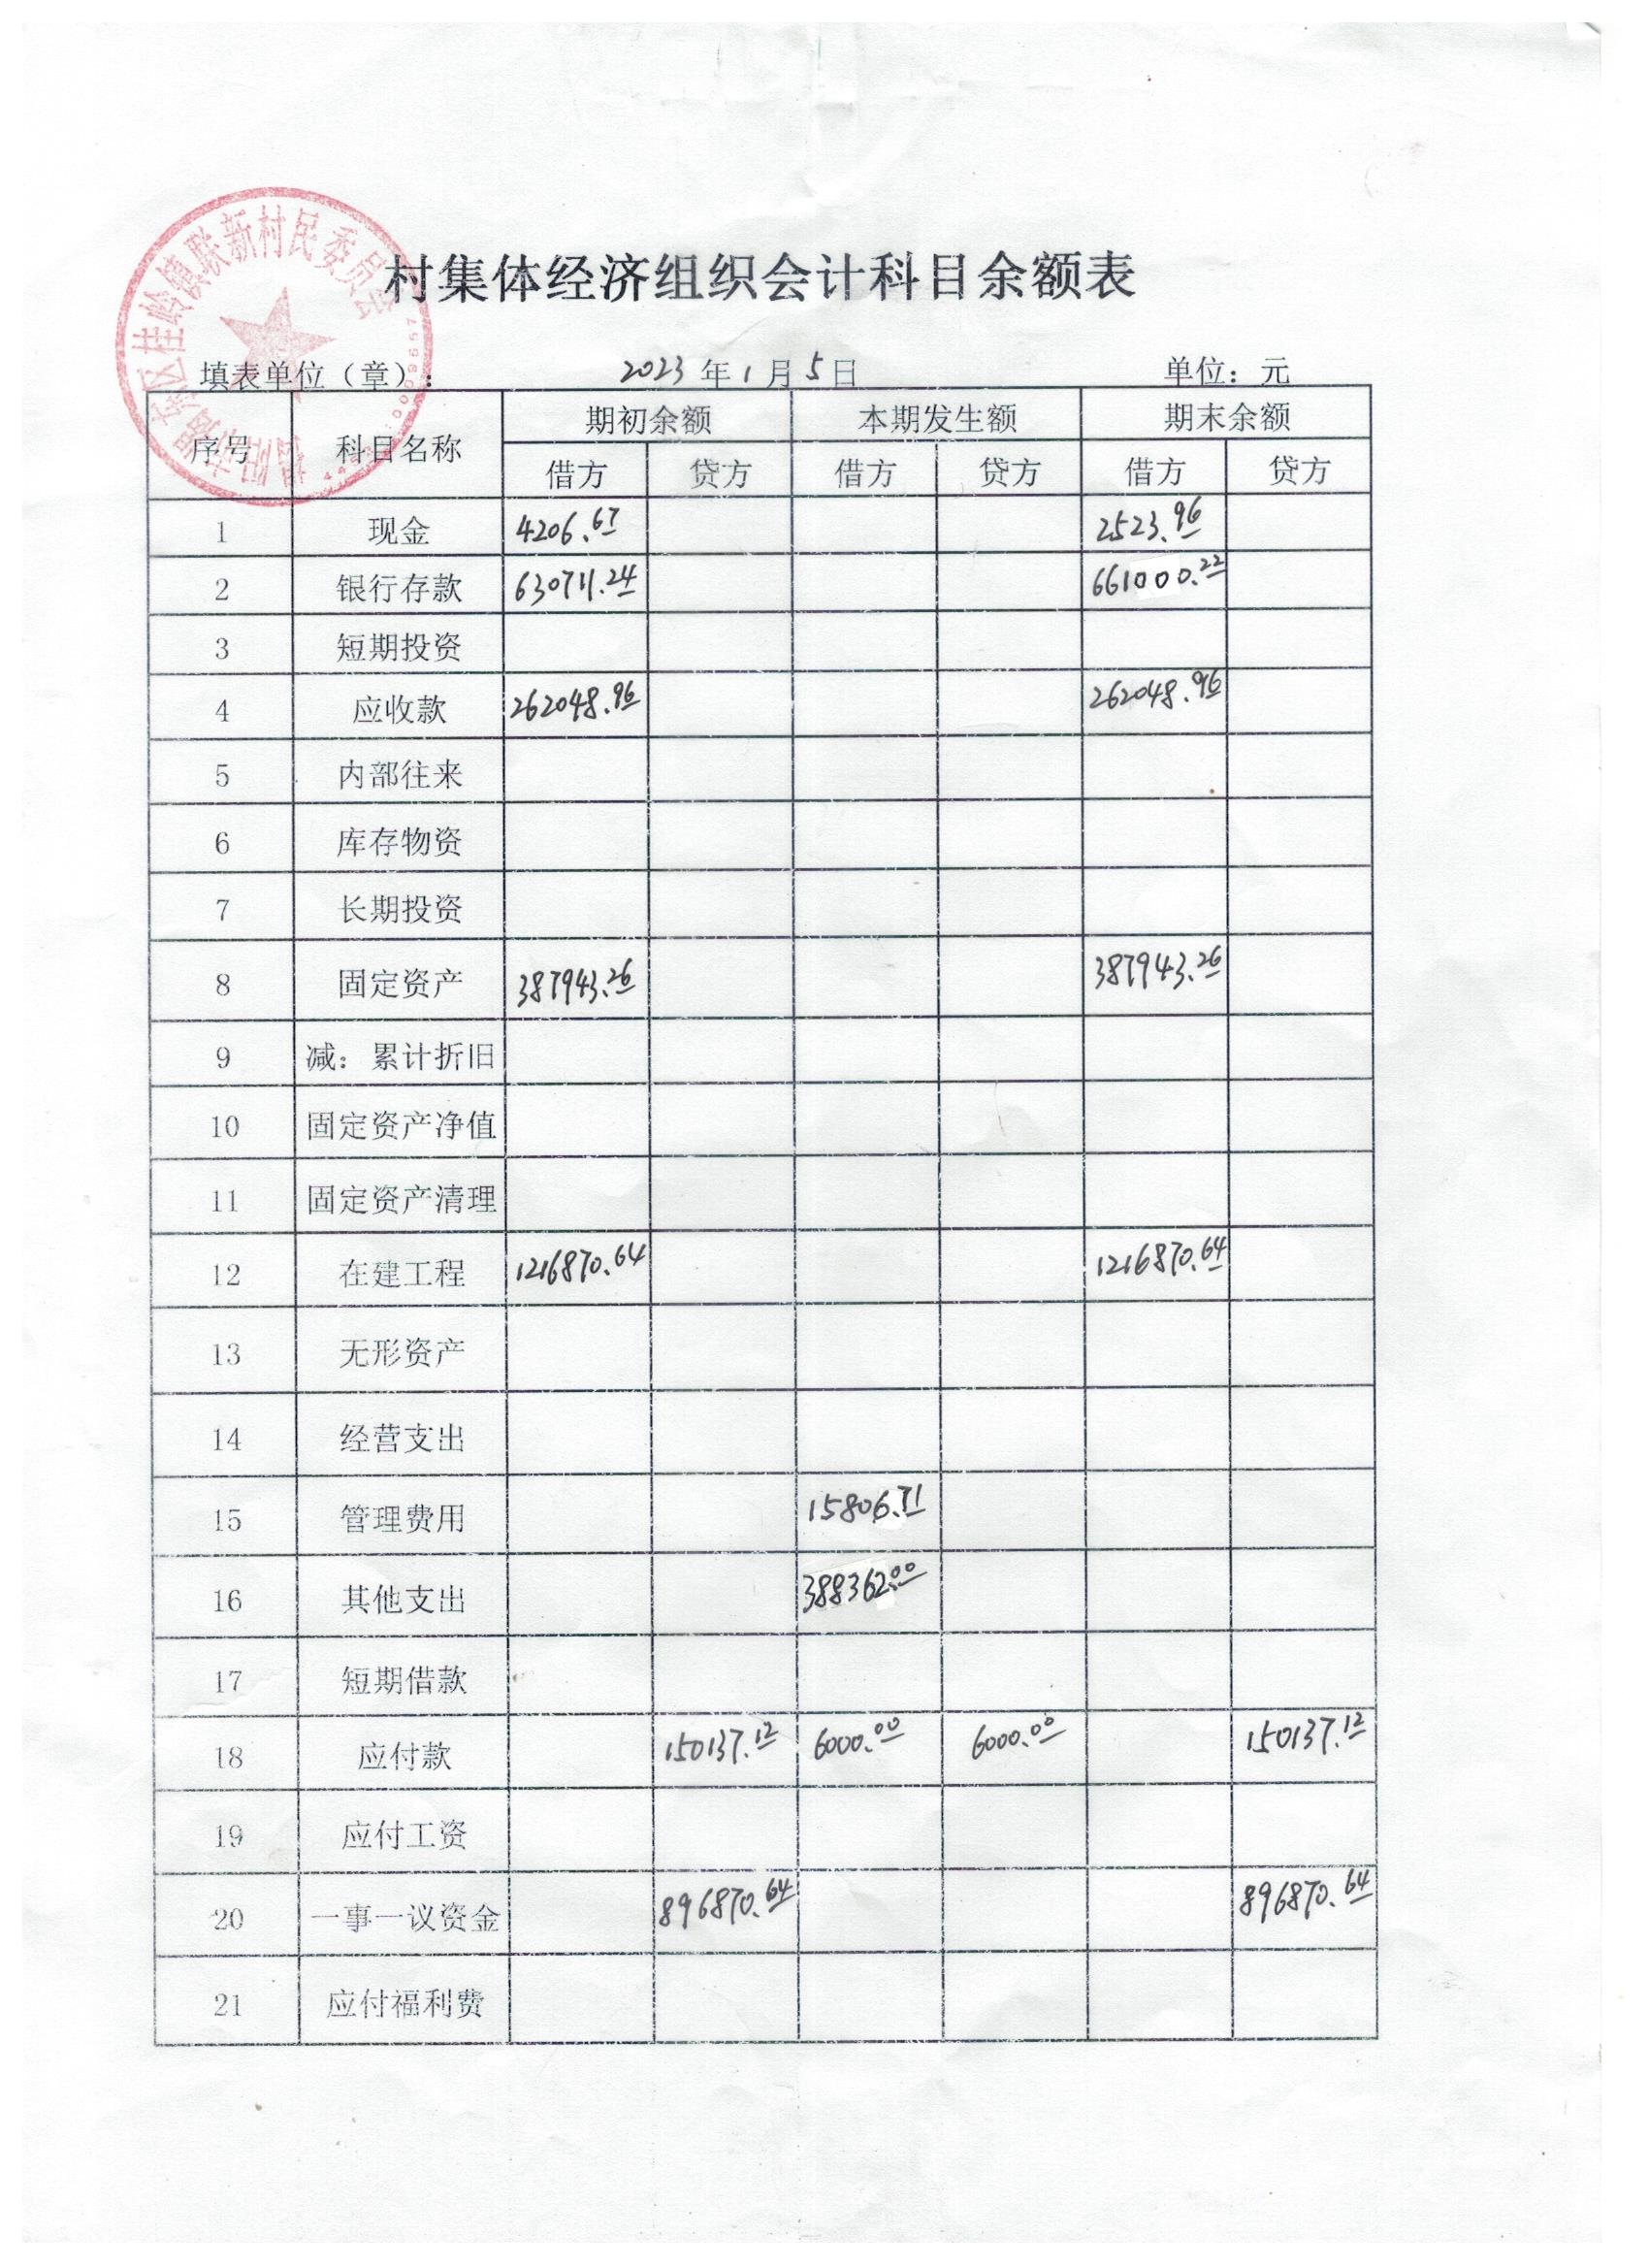 村集体经济组织会计科目余额表
桂岭镇联新村民委员会
填表单位（章）： 2023年1月5日 单位：元
序号 科目名称 期初余额 本期发生额 期末余额
借方 贷方 借方 贷方 借方 贷方
1 现金 4206.67 2523.96
2 银行存款 63071.24 661000.22
3 短期投资
4 应收款 262048.96 262048.96
5 内部往来
6 库存物资
7 长期投资
8 固定资产 387943.26 387943.26
9 减：累计折旧
10 固定资产净值
11 固定资产清理
12 在建工程 1216870.64 1216870.64
13 无形资产
14 经营支出
15 管理费用 15806.71
16 其他支出 388362.00
17 短期借款
18 应付款 150137.12 6000.00 6000.00 150137.12
19 应付工资
20 一事一议资金 896870.64 896870.64
21 应付福利费